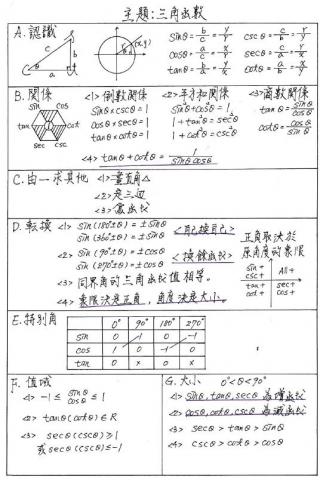 主題:三角函數
A.認識
c b a C
(x,y)
sinθ=b/c=y/r cscθ=c/b=r/y
cosθ=a/c=x/r secθ=c/a=r/x
tanθ=b/a=y/x cotθ=a/b=x/y
B.關係
sin cos
tan cot
sec csc
<1>倒數關係
sinθ×cscθ=1
cosθ×secθ=1
tanθ×cotθ=1
<2>平方和關係
sin²θ+cos²θ=1
1+tan²θ=sec²θ
1+cot²θ=csc²θ
<3>商數關係
tanθ=sinθ/cosθ
cotθ=cosθ/sinθ
<4> tanθ+cotθ=1/sinθcosθ
C.由一求其他 <1>畫直角△
<2>定三边
<3>寫函數
D.轉換 <1> sin(180°±θ)=±sinθ <自己換自己>
sin(360°±θ)=±sinθ
<2> sin(90°±θ)=±cosθ <換餘函數>
sin(270°±θ)=±cosθ
<3>同界角的三角函數值相等。
<4>象限決定正負,角度決定大小。
正負取決於
原角度的象限
sin+ csc+ All+
tan+ cot+ cos+ sec+
E.特別角
0° 90° 180° 270°
sin 0 1 0 -1
cos 1 0 -1 0
tan 0 x 0 x
F.值域
<1> -1≤sinθ cosθ≤1
<2> tanθ(cotθ)∈R
<3> secθ(cscθ)≥1
或secθ(cscθ)≤-1
G.大小 0°<θ<90°
<1> sinθ,tanθ,secθ為增函數
<2> cosθ,cotθ,cscθ為減函數
<3> secθ>tanθ>sinθ
<4> cscθ>cotθ>cosθ